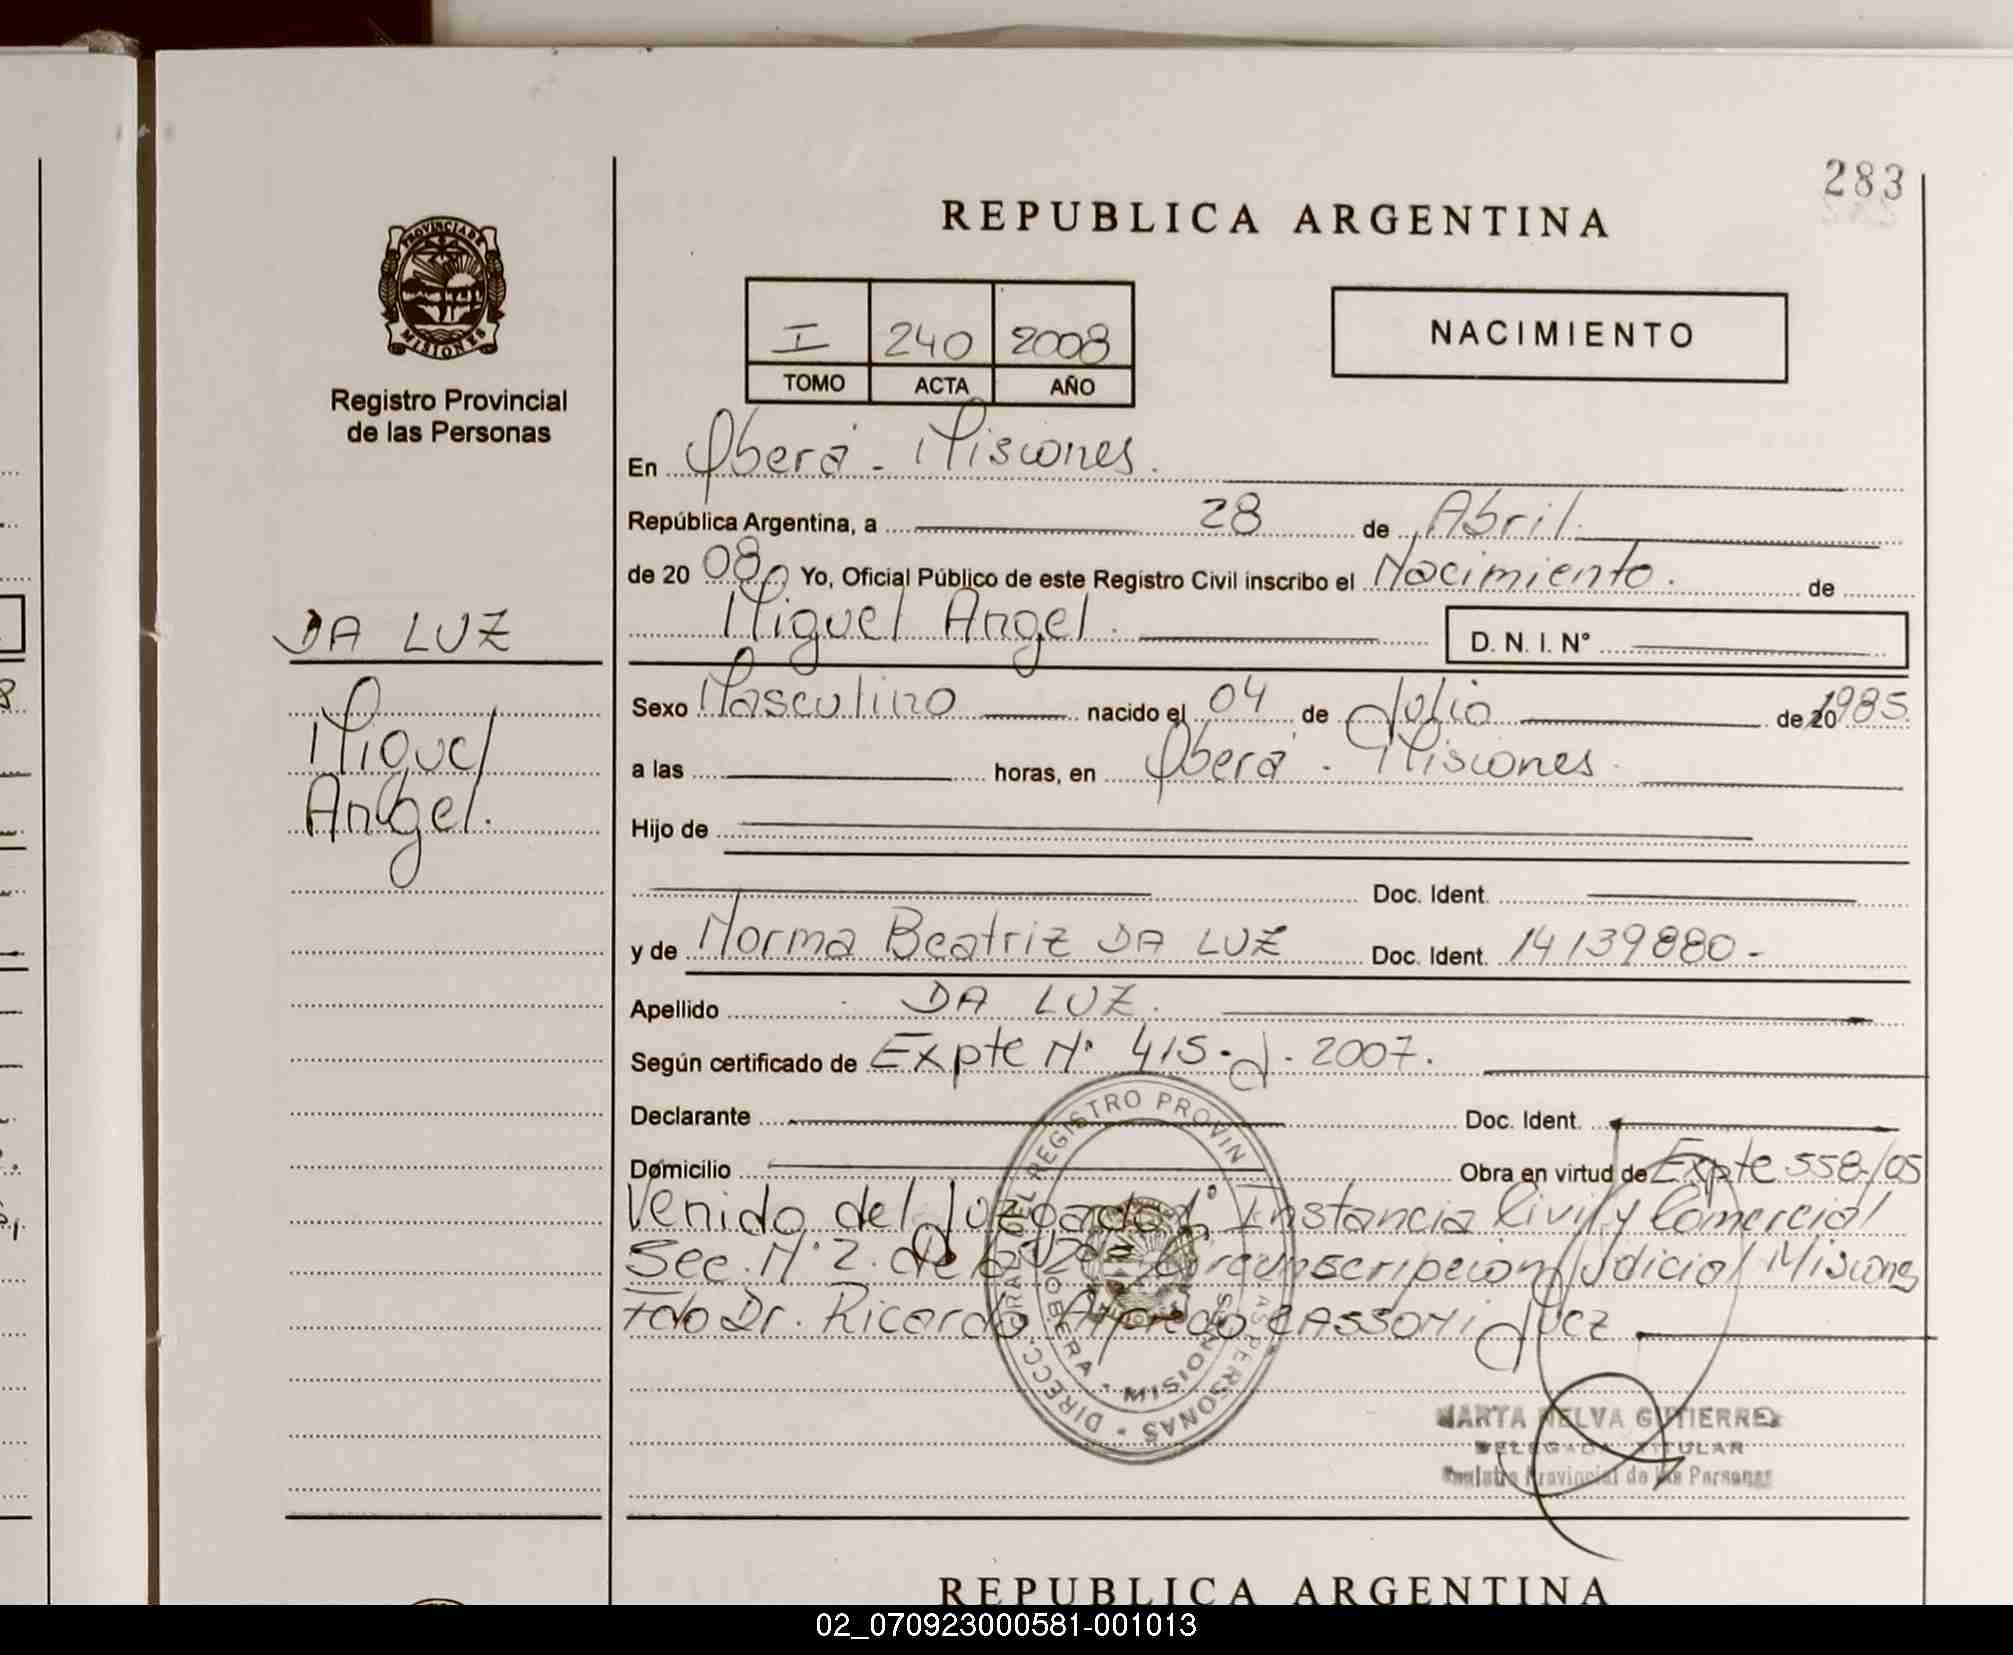 283
REPUBLICA ARGENTINA
PROVINCIA DE
MISIONES
Registro Provincial
de las Personas
I 240 2008
TOMO ACTA AÑO
NACIMIENTO
En Oberá - Misiones.
República Argentina, a 28 de Abril.
de 20 08 Yo, Oficial Público de este Registro Civil inscribo el Nacimiento. de
Miguel Angel. D. N. I. N°
DA LUZ
Miguel
Angel.
Sexo Masculino nacido el 04 de Julio de 20 1985.
a las horas, en Oberá - Misiones.
Hijo de
Doc. Ident.
y de Norma Beatriz DA LUZ Doc. Ident. 14139880-
Apellido DA LUZ.
Según certificado de Expte N° 415-J-2007.
Declarante Doc. Ident.
Domicilio Obra en virtud de Expte 558/05
Venido del Juzgado 1° Instancia Civil y Comercial
Sec. N° 2. de la 2da Circunscripción Judicial Misiones
Fdo Dr. Ricardo Alfredo CASSONI Juez
DIRECC. GRAL. DEL REGISTRO PROVIN DE LAS PERSONAS
OBERA - MISIONES
MARTA NELVA GUTIERREZ
DELEGADA TITULAR
Registro Provincial de las Personas
REPUBLICA ARGENTINA
02_070923000581-001013